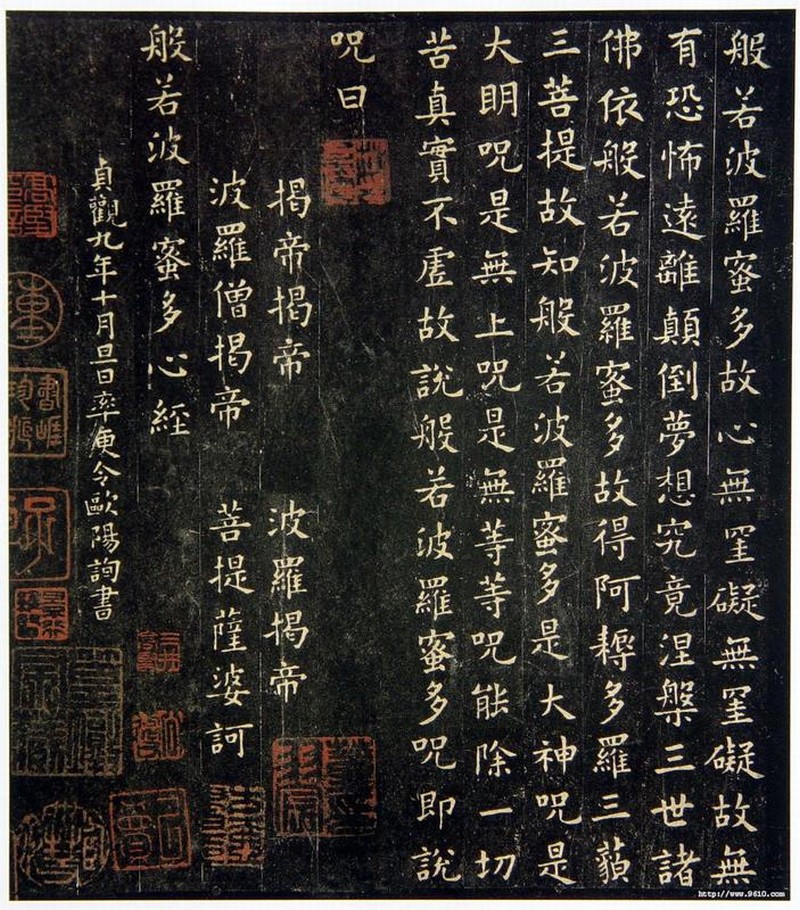 般若波羅蜜多故心無罣礙無罣礙故無
有恐怖遠離顛倒夢想究竟涅槃三世諸
佛依般若波羅蜜多故得阿耨多羅三藐
三菩提故知般若波羅蜜多是大神呪是
大明呪是無上呪是無等等呪能除一切
苦真實不虛故說般若波羅蜜多呪即說
呪曰
揭帝揭帝　波羅揭帝
波羅僧揭帝　菩提薩婆訶
般若波羅蜜多心經
貞觀九年十月旦日率更令歐陽詢書
http://www.9610.com